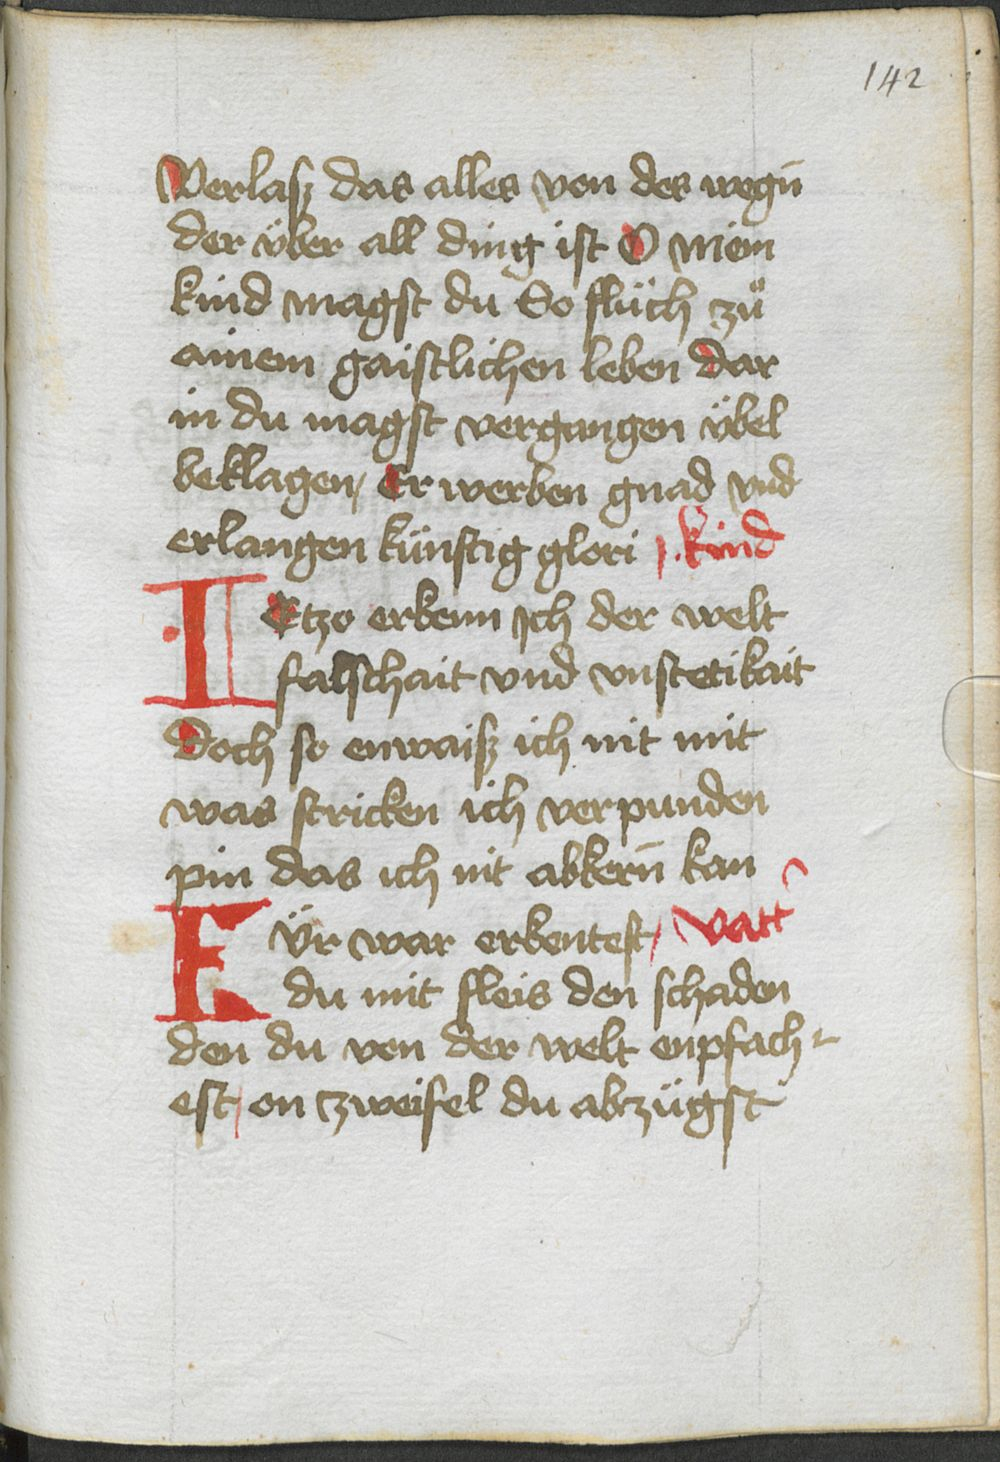 142
Verlasz das alles von des wegn̄
der über all ding ist O mein
kind magst du So flüch zů
ainem gaistlichen leben Dar
in du magst vergangen übel
beklagen, Er werben gnad vnd
erlangen künftig glori kind
IEtzo erkenn ich der welt
falschait vnd vnstetikait
Doch so enwaisz ich nit mit
was stricken ich verpunden
pin das ich nit abkern̄ kan
FÜr war erkentest, vatt᷑
du mit fleis den schaden
den du von der welt enpfach-
est, on zweifel du abzügst